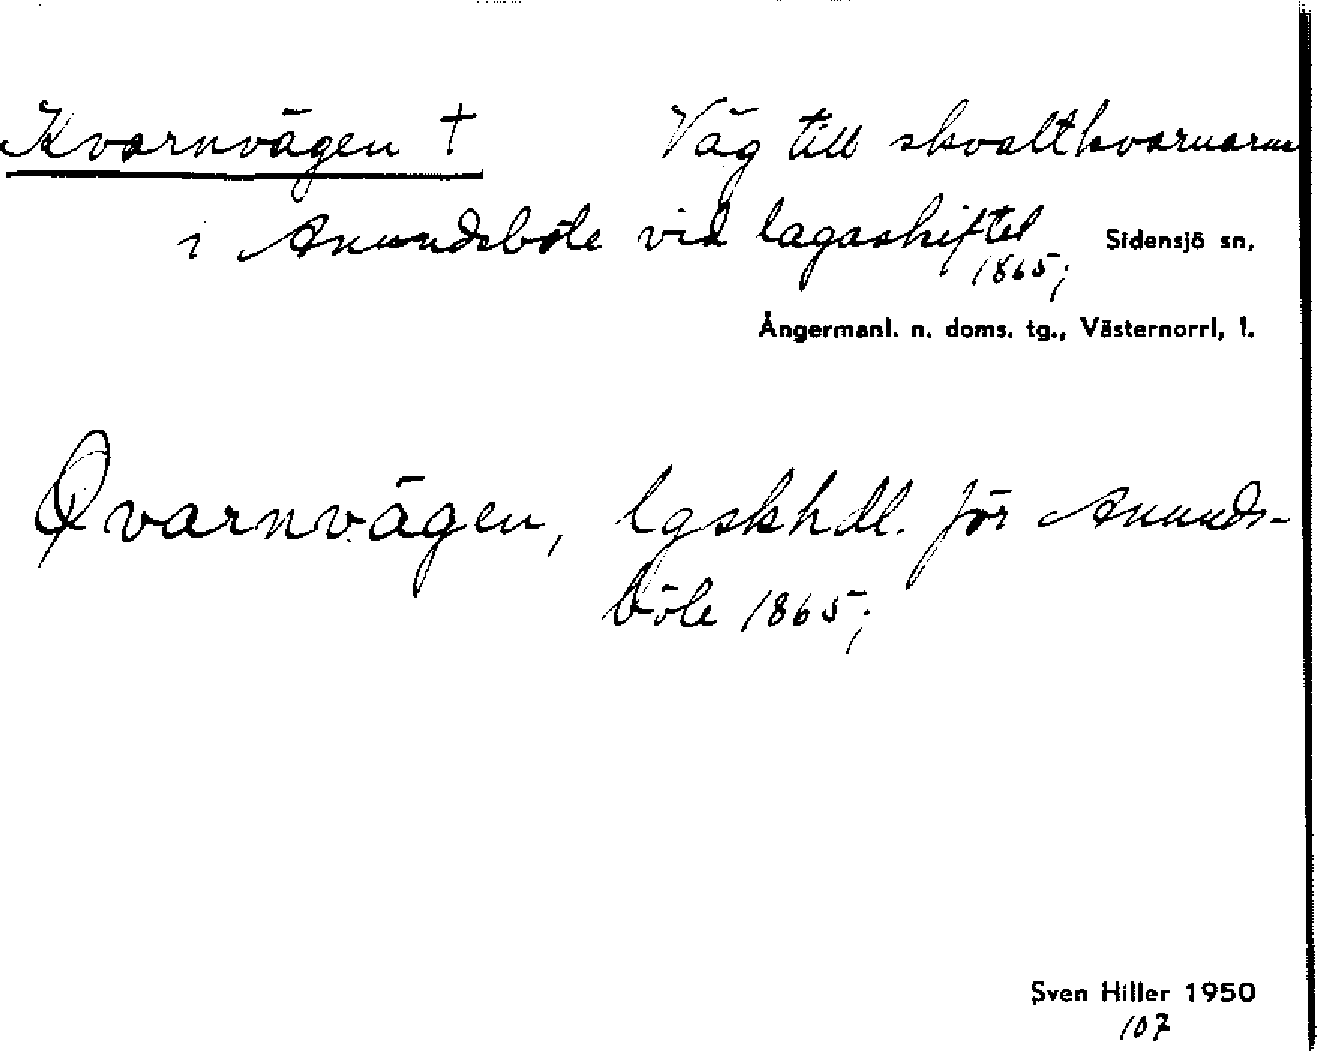 Kvarnvägen † Väg till skvaltkvarnarna
i Anundsböle vid lagaskiftet
1865;
Sidensjö sn.
Ångermanl. n. doms. tg., Västernorrl, l.
Qvarnvägen, lgskhdl. för Anunds-
böle 1865;
Sven Hiller 1950
107